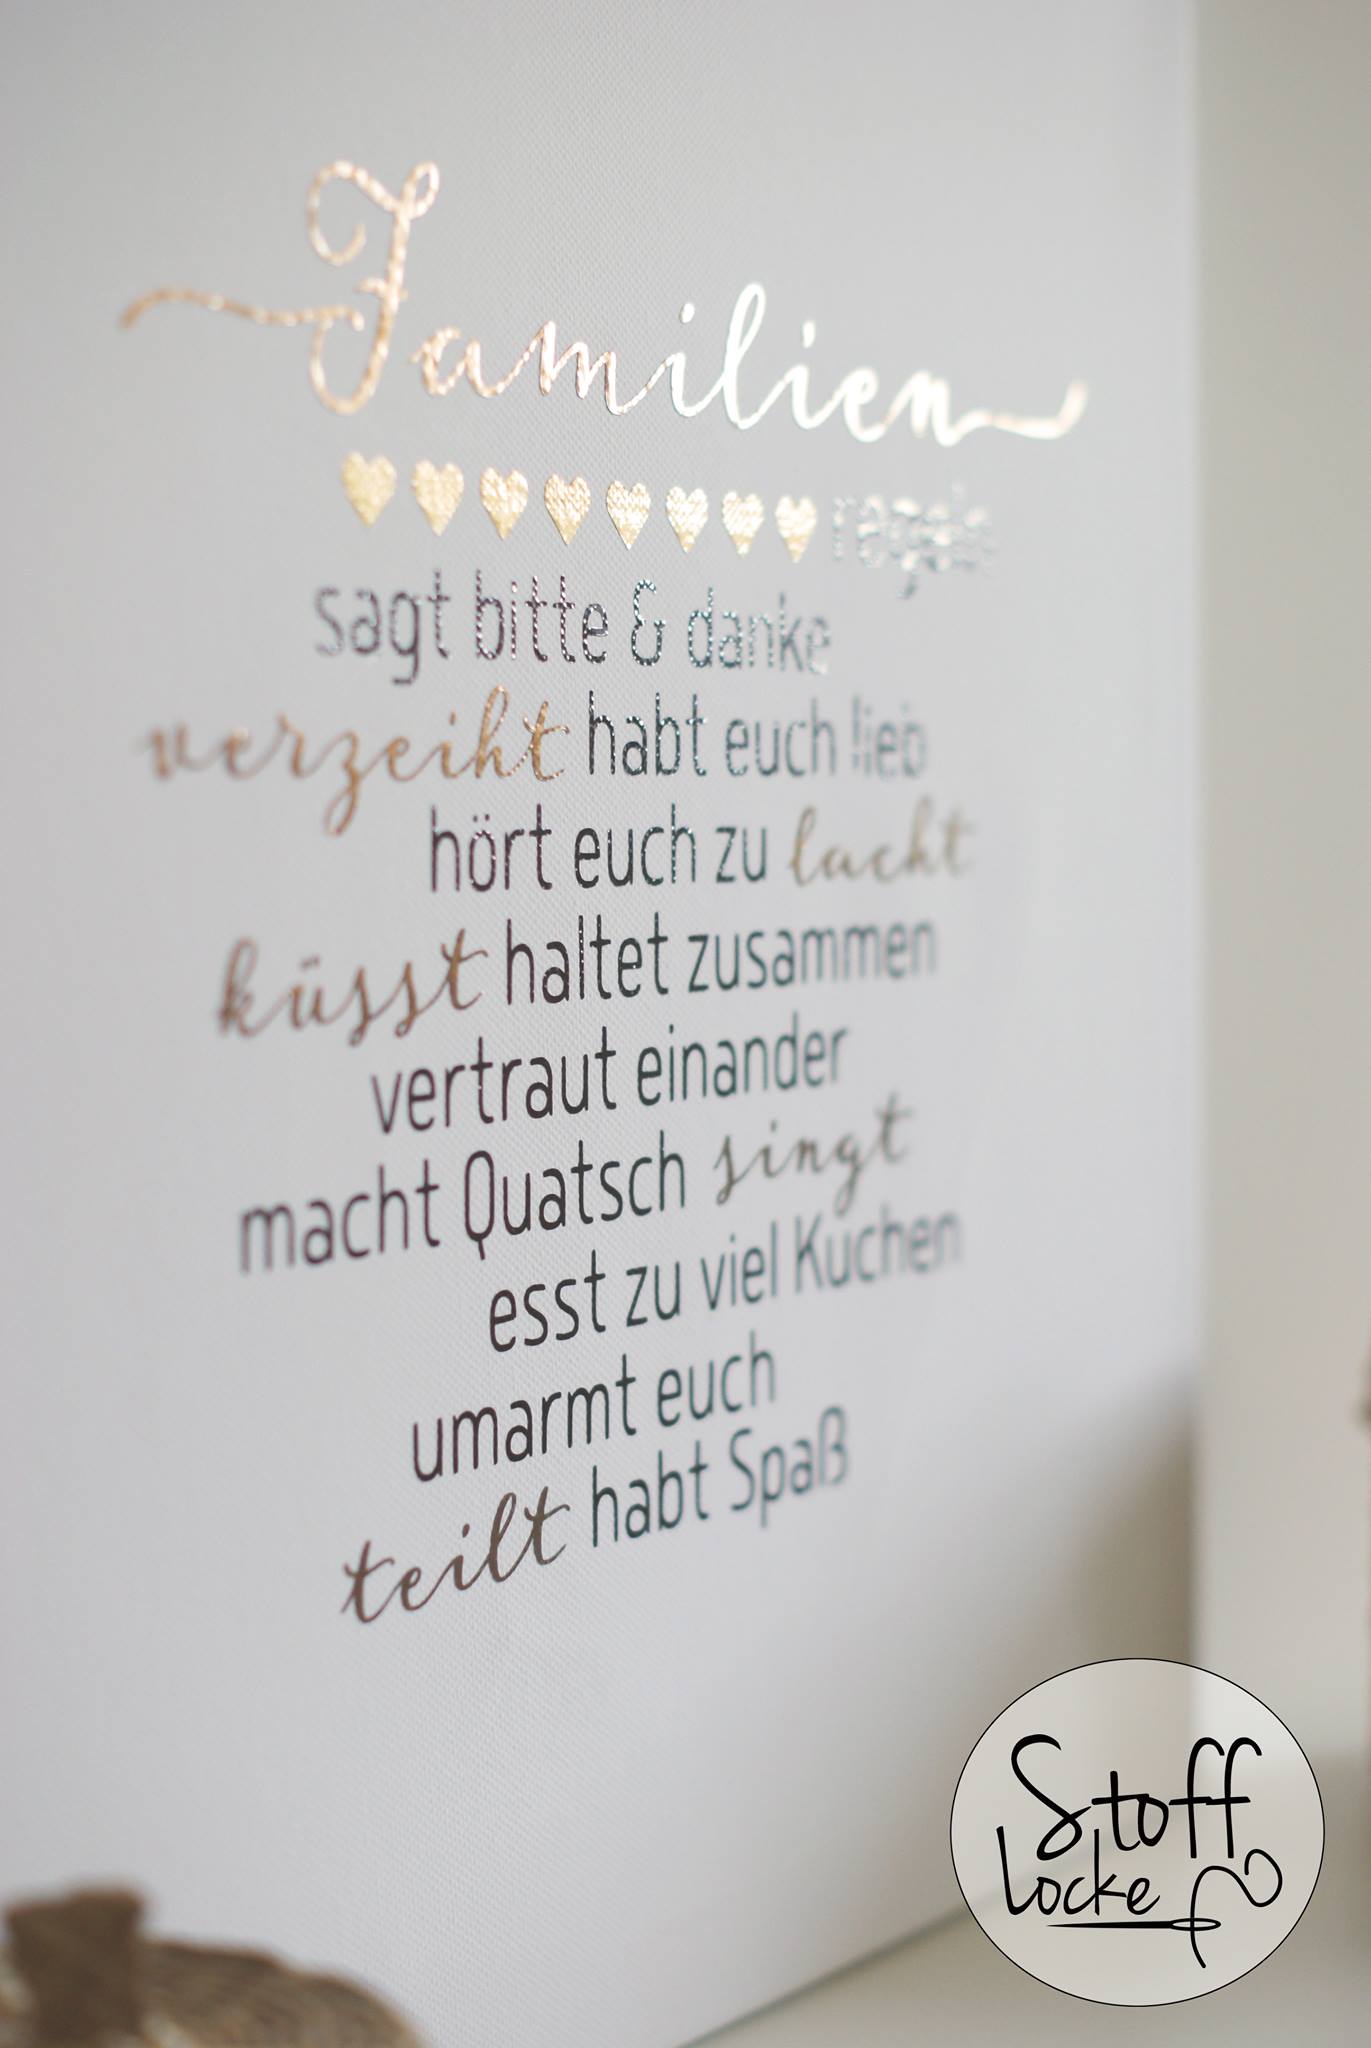 Familien
regeln
sagt bitte & danke
verzeiht habt euch lieb
hört euch zu lacht
küsst haltet zusammen
vertraut einander
macht Quatsch singt
esst zu viel Kuchen
umarmt euch
teilt habt Spaß
Stoff
Locke